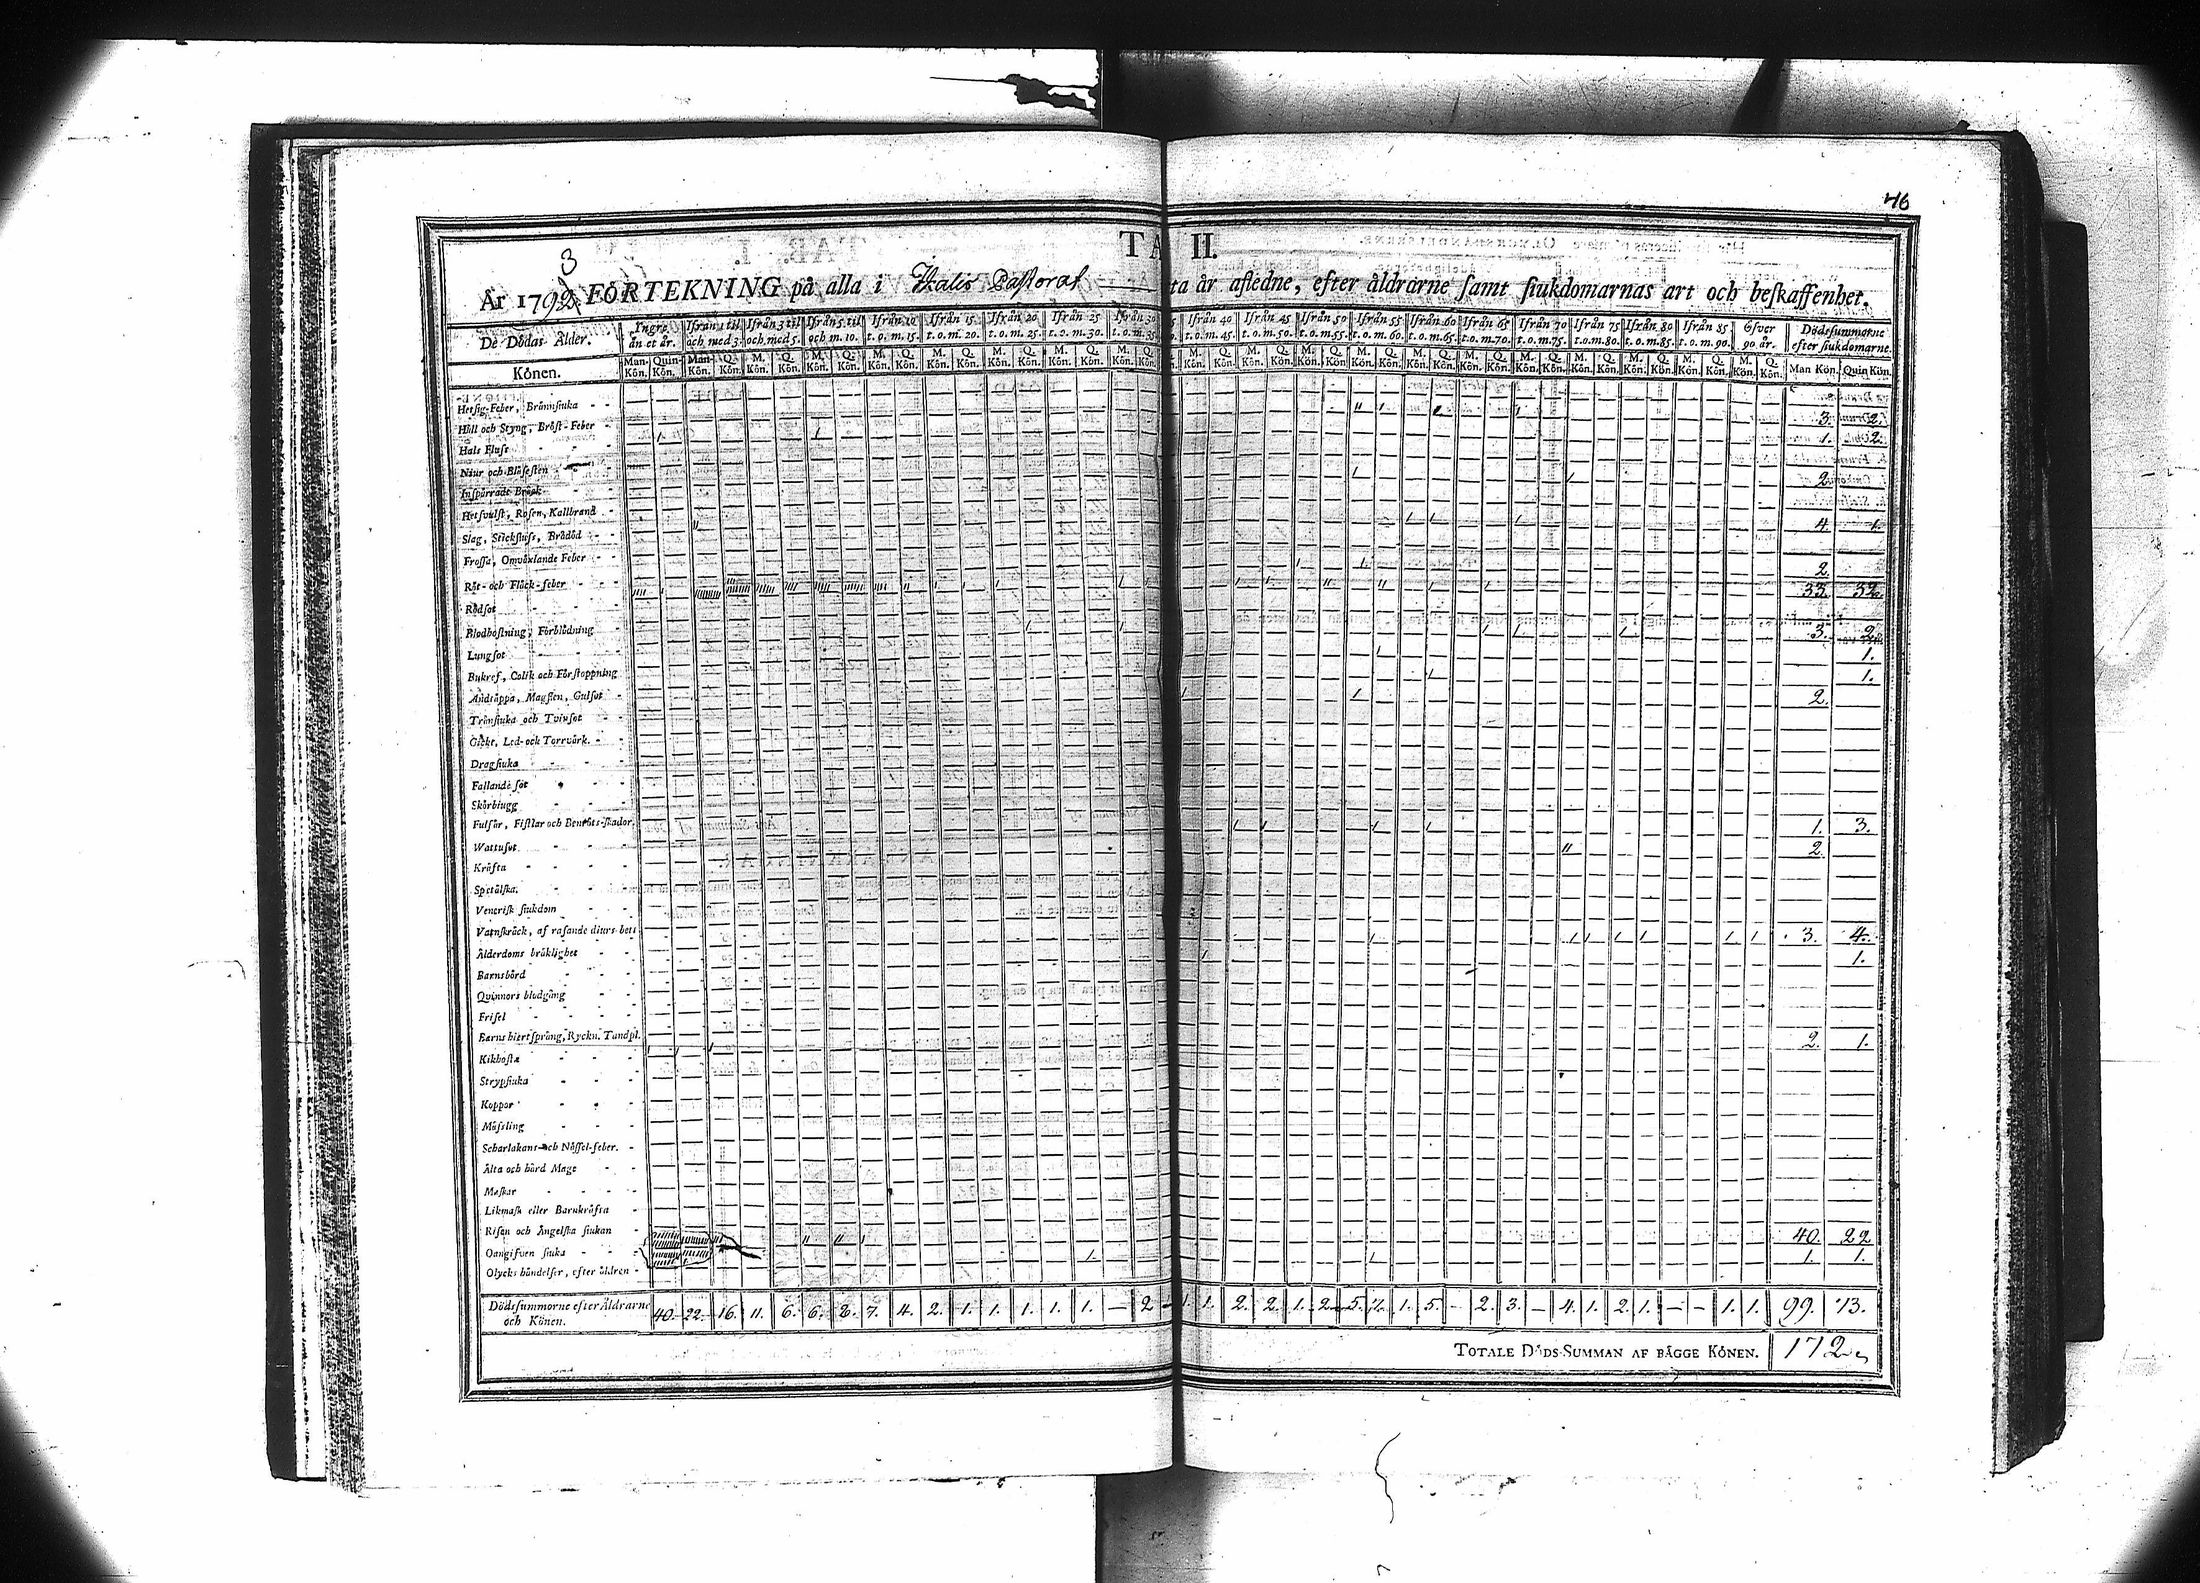 76
TA II.
3
År 1792 FÖRTEKNING på alla i Pastorat ta år afledne, efter åldrarne samt siukdomarnas art och beskaffenhet.
De Dödas Ålder. Yngre än et år. Ifrån 1 til och med 3. Ifrån 3 til och med 5. Ifrån 5 til och m. 10. Ifrån 10 t. o. m. 15. Ifrån 15 t. o. m. 20. Ifrån 20 t. o. m. 25. Ifrån 25 t. o. m. 30. Ifrån 30 t. o. m. 35. Ifrån 40 t. o. m. 45. Ifrån 45 t. o. m. 50. Ifrån 50 t. o. m. 55. Ifrån 55 t. o. m. 60. Ifrån 60 t. o. m. 65. Ifrån 65 t. o. m. 70. Ifrån 70 t. o. m. 75. Ifrån 75 t. o. m. 80. Ifrån 80 t. o. m. 85. Ifrån 85 t. o. m. 90. Öfver 90. år. Dödssummorne efter siukdomarne.
Könen. Man Kön. Quin Kön. Man Kön. Q. Kön. M. Kön. Q. Kön. M. Kön. Q. Kön. Man Kön. Quin Kön.
Hetsig-Feber, Brännsiuka
Håll och Styng, Bröst-Feber 3. 2.
Hals Fluss 1. 2.
Niur och Blåsesten
Inspärrade Bråck 2.
Hetsvulst, Rosen, Kallbrand
Slag, Stickfluss, Brådöd 4. 1.
Frossa, Omväxlande Feber
Röt- och Fläck-feber 2.
Rödsot 33. 32.
Blodhostning, Förblödning
Lungsot 3. 2.
Bukref, Colik och Förstoppning 1.
Andtäppa, Magsten, Gulsot 1.
Trånsiuka och Tvinsot 2.
Gickt, Led- och Torrvärk.
Dragsiuka
Fallande sot
Skörbiugg
Fulsår, Fistlar och Benröts-skador.
Wattusot 1. 3.
Kräfta 2.
Spetälska.
Venerisk siukdom
Vatnskräck, af rasande diurs bett
Ålderdoms bräklighet 3. 4.
Barnsbörd 1.
Qvinnors blodgång
Frisel
Barns hiertsprång, Ryckn. Tandpl.
Kikhosta 2. 1.
Strypsiuka
Koppor
Mässling
Scharlakans- och Nässel-feber.
Älta och hård Mage
Maskar
Likmask eller Barnkräfta
Risen och Ängelska siukan
Oangifven siuka 40. 22
Olycks händelser, efter åldren 1. 1.
Dödssummorne efter Åldrarne och Könen. 40. 22. 16. 11. 6. 6. 8. 7. 4. 2. 1. 1. 1. 1. 1. — 2 — 1. 1. 2. 2. 1. 2. 5. 1. 5. — 2. 3. — 4. 1. 2. 1. — — 1. 1. 99. 73.
TOTALE DÖDS-SUMMAN AF BÄGGE KÖNEN. 172